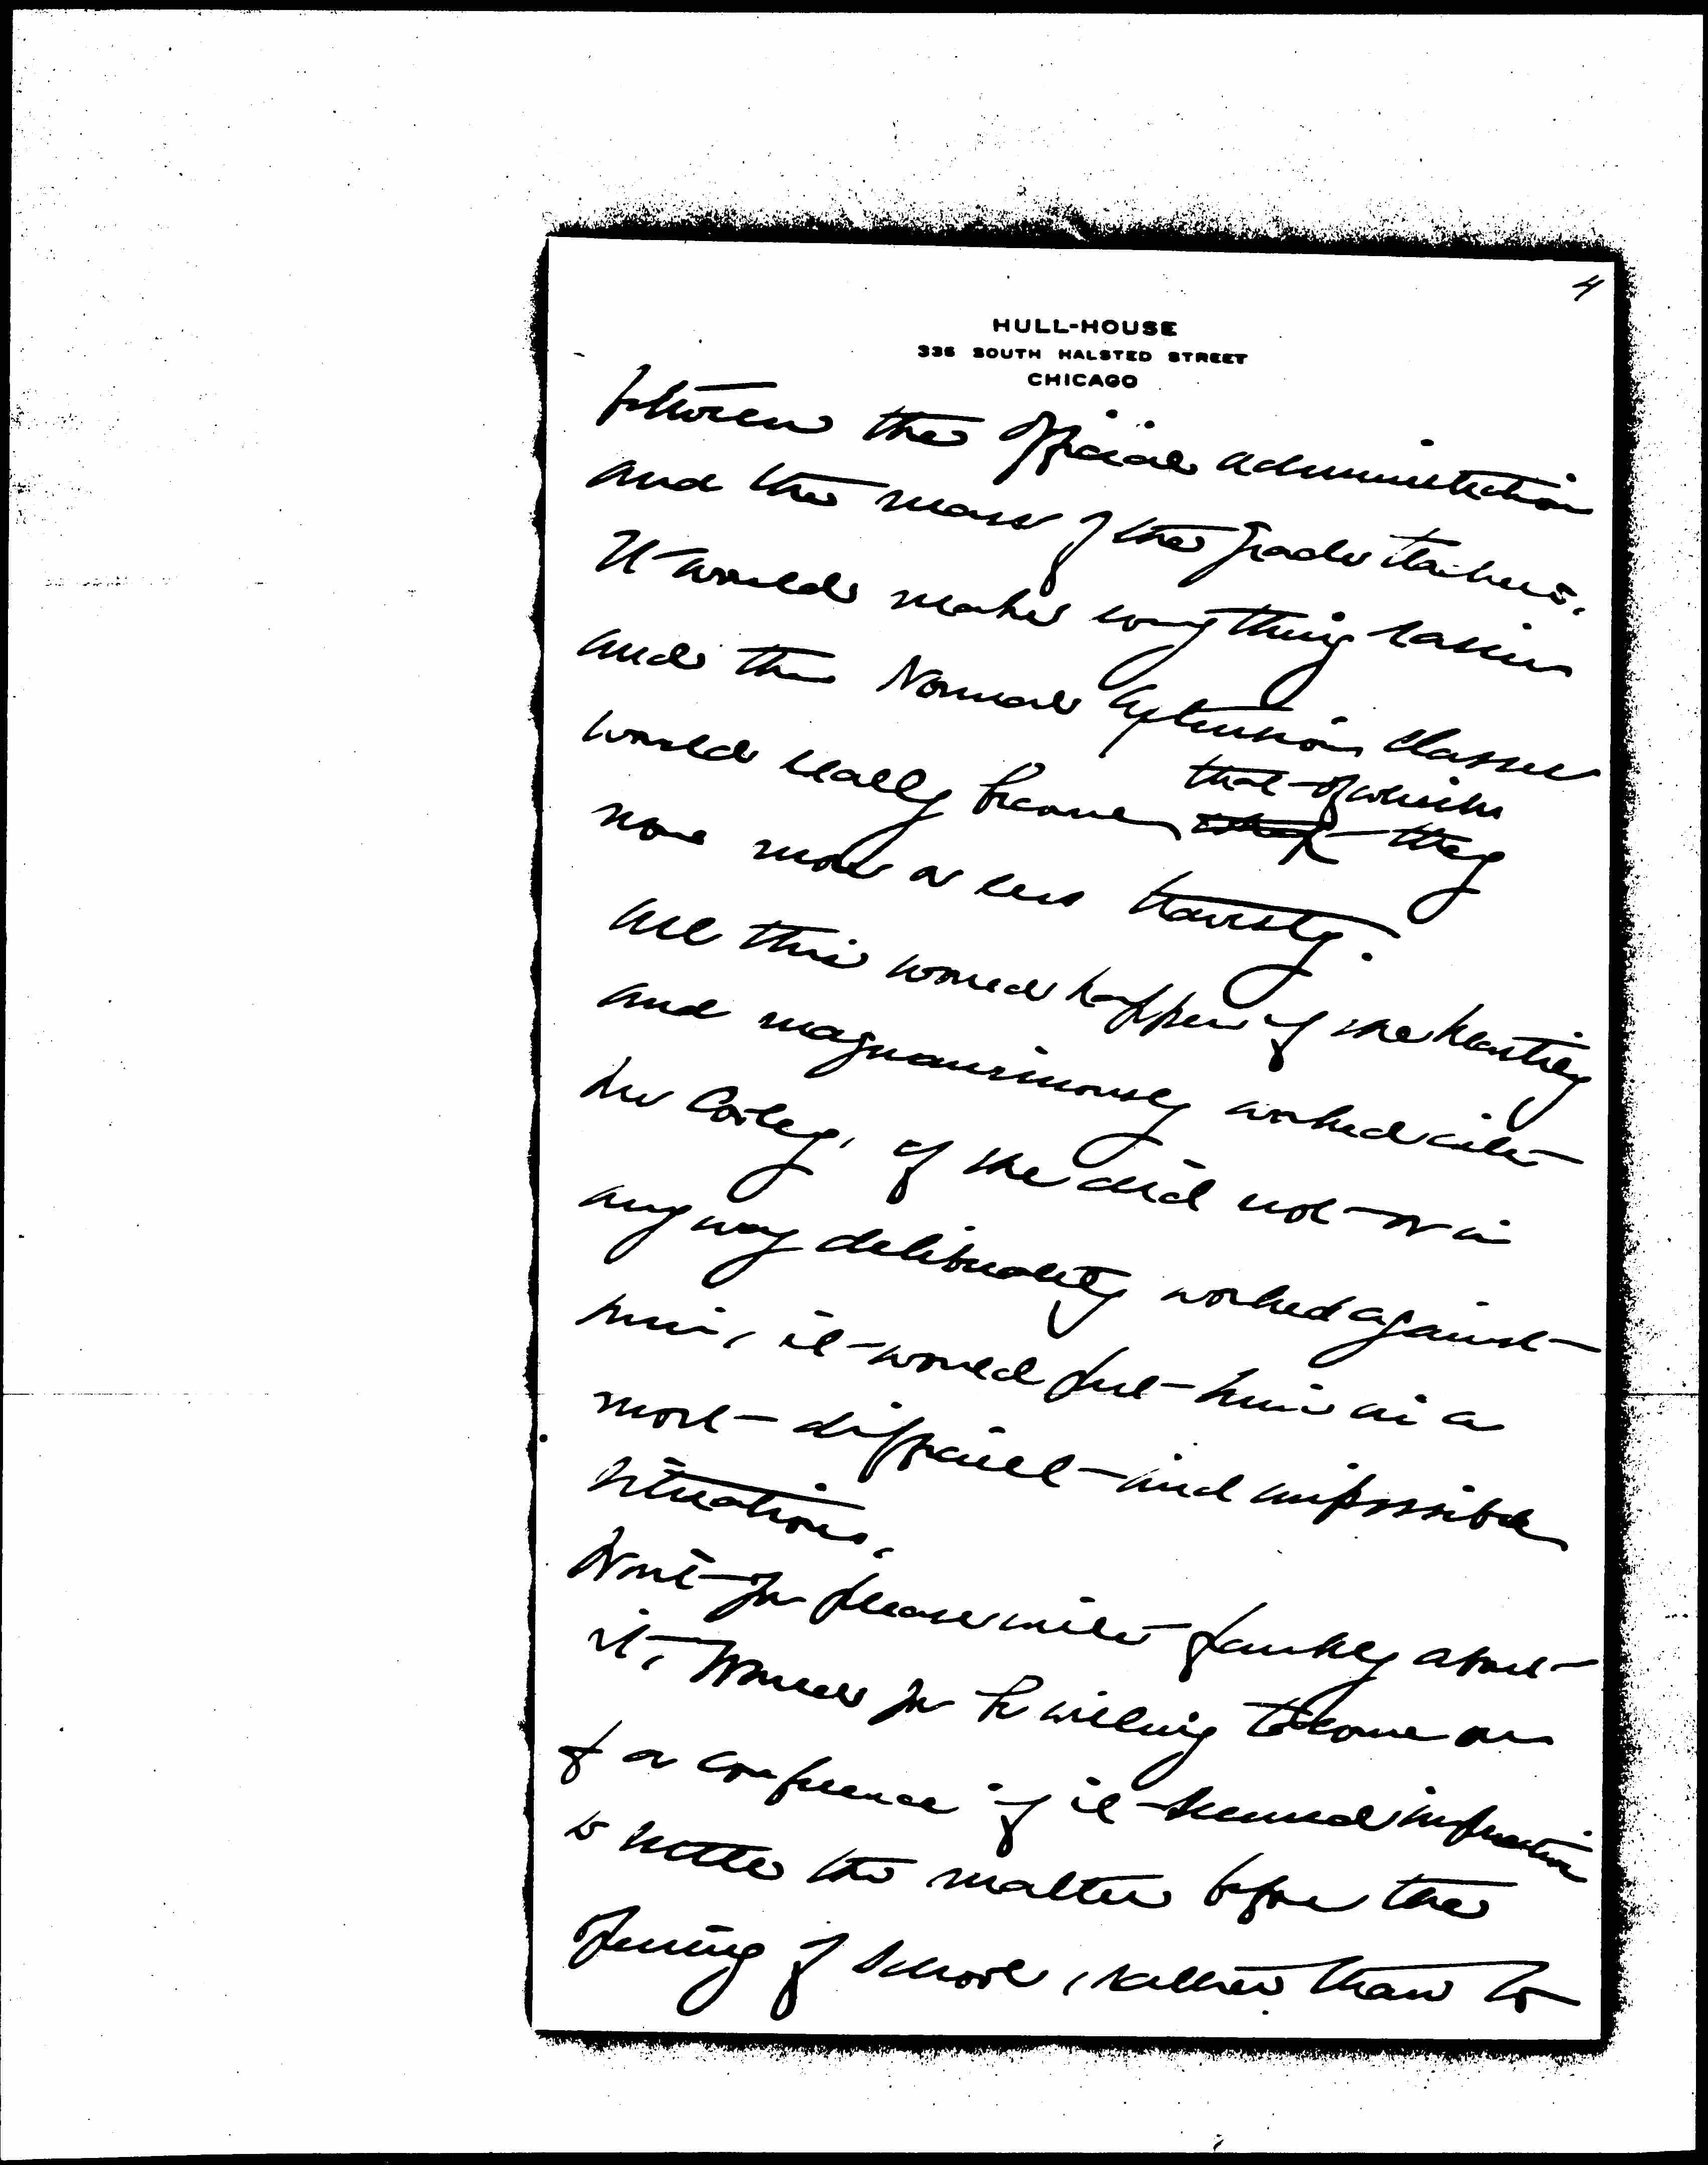 4
HULL-HOUSE
335 SOUTH HALSTED STREET
CHICAGO
between the official administration
and the mass of the grade teachers.
It would make everything easier
and the Normal Extension classes
would really become that of which they
now more or less travesty.
All this would happen if she heartily
and magnanimously worked with
Mr Cooley, if she did not or in
any way deliberately worked against
him, it would put him in a
most difficult and impossible
situation.
Won't you please write frankly about
it, Would you be willing to come on
for a conference if it seemed imperative
to settle the matter before the
opening of school, rather than to